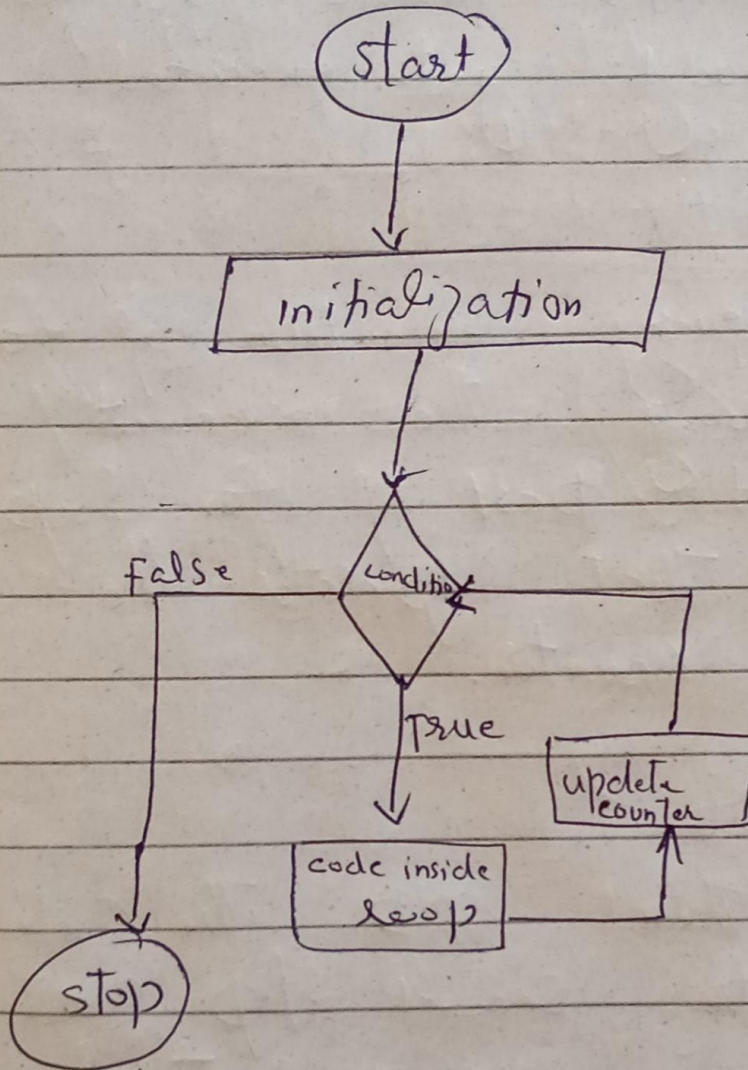 start
initialization
condition
False
True
updete
counter
code inside
loop
stop